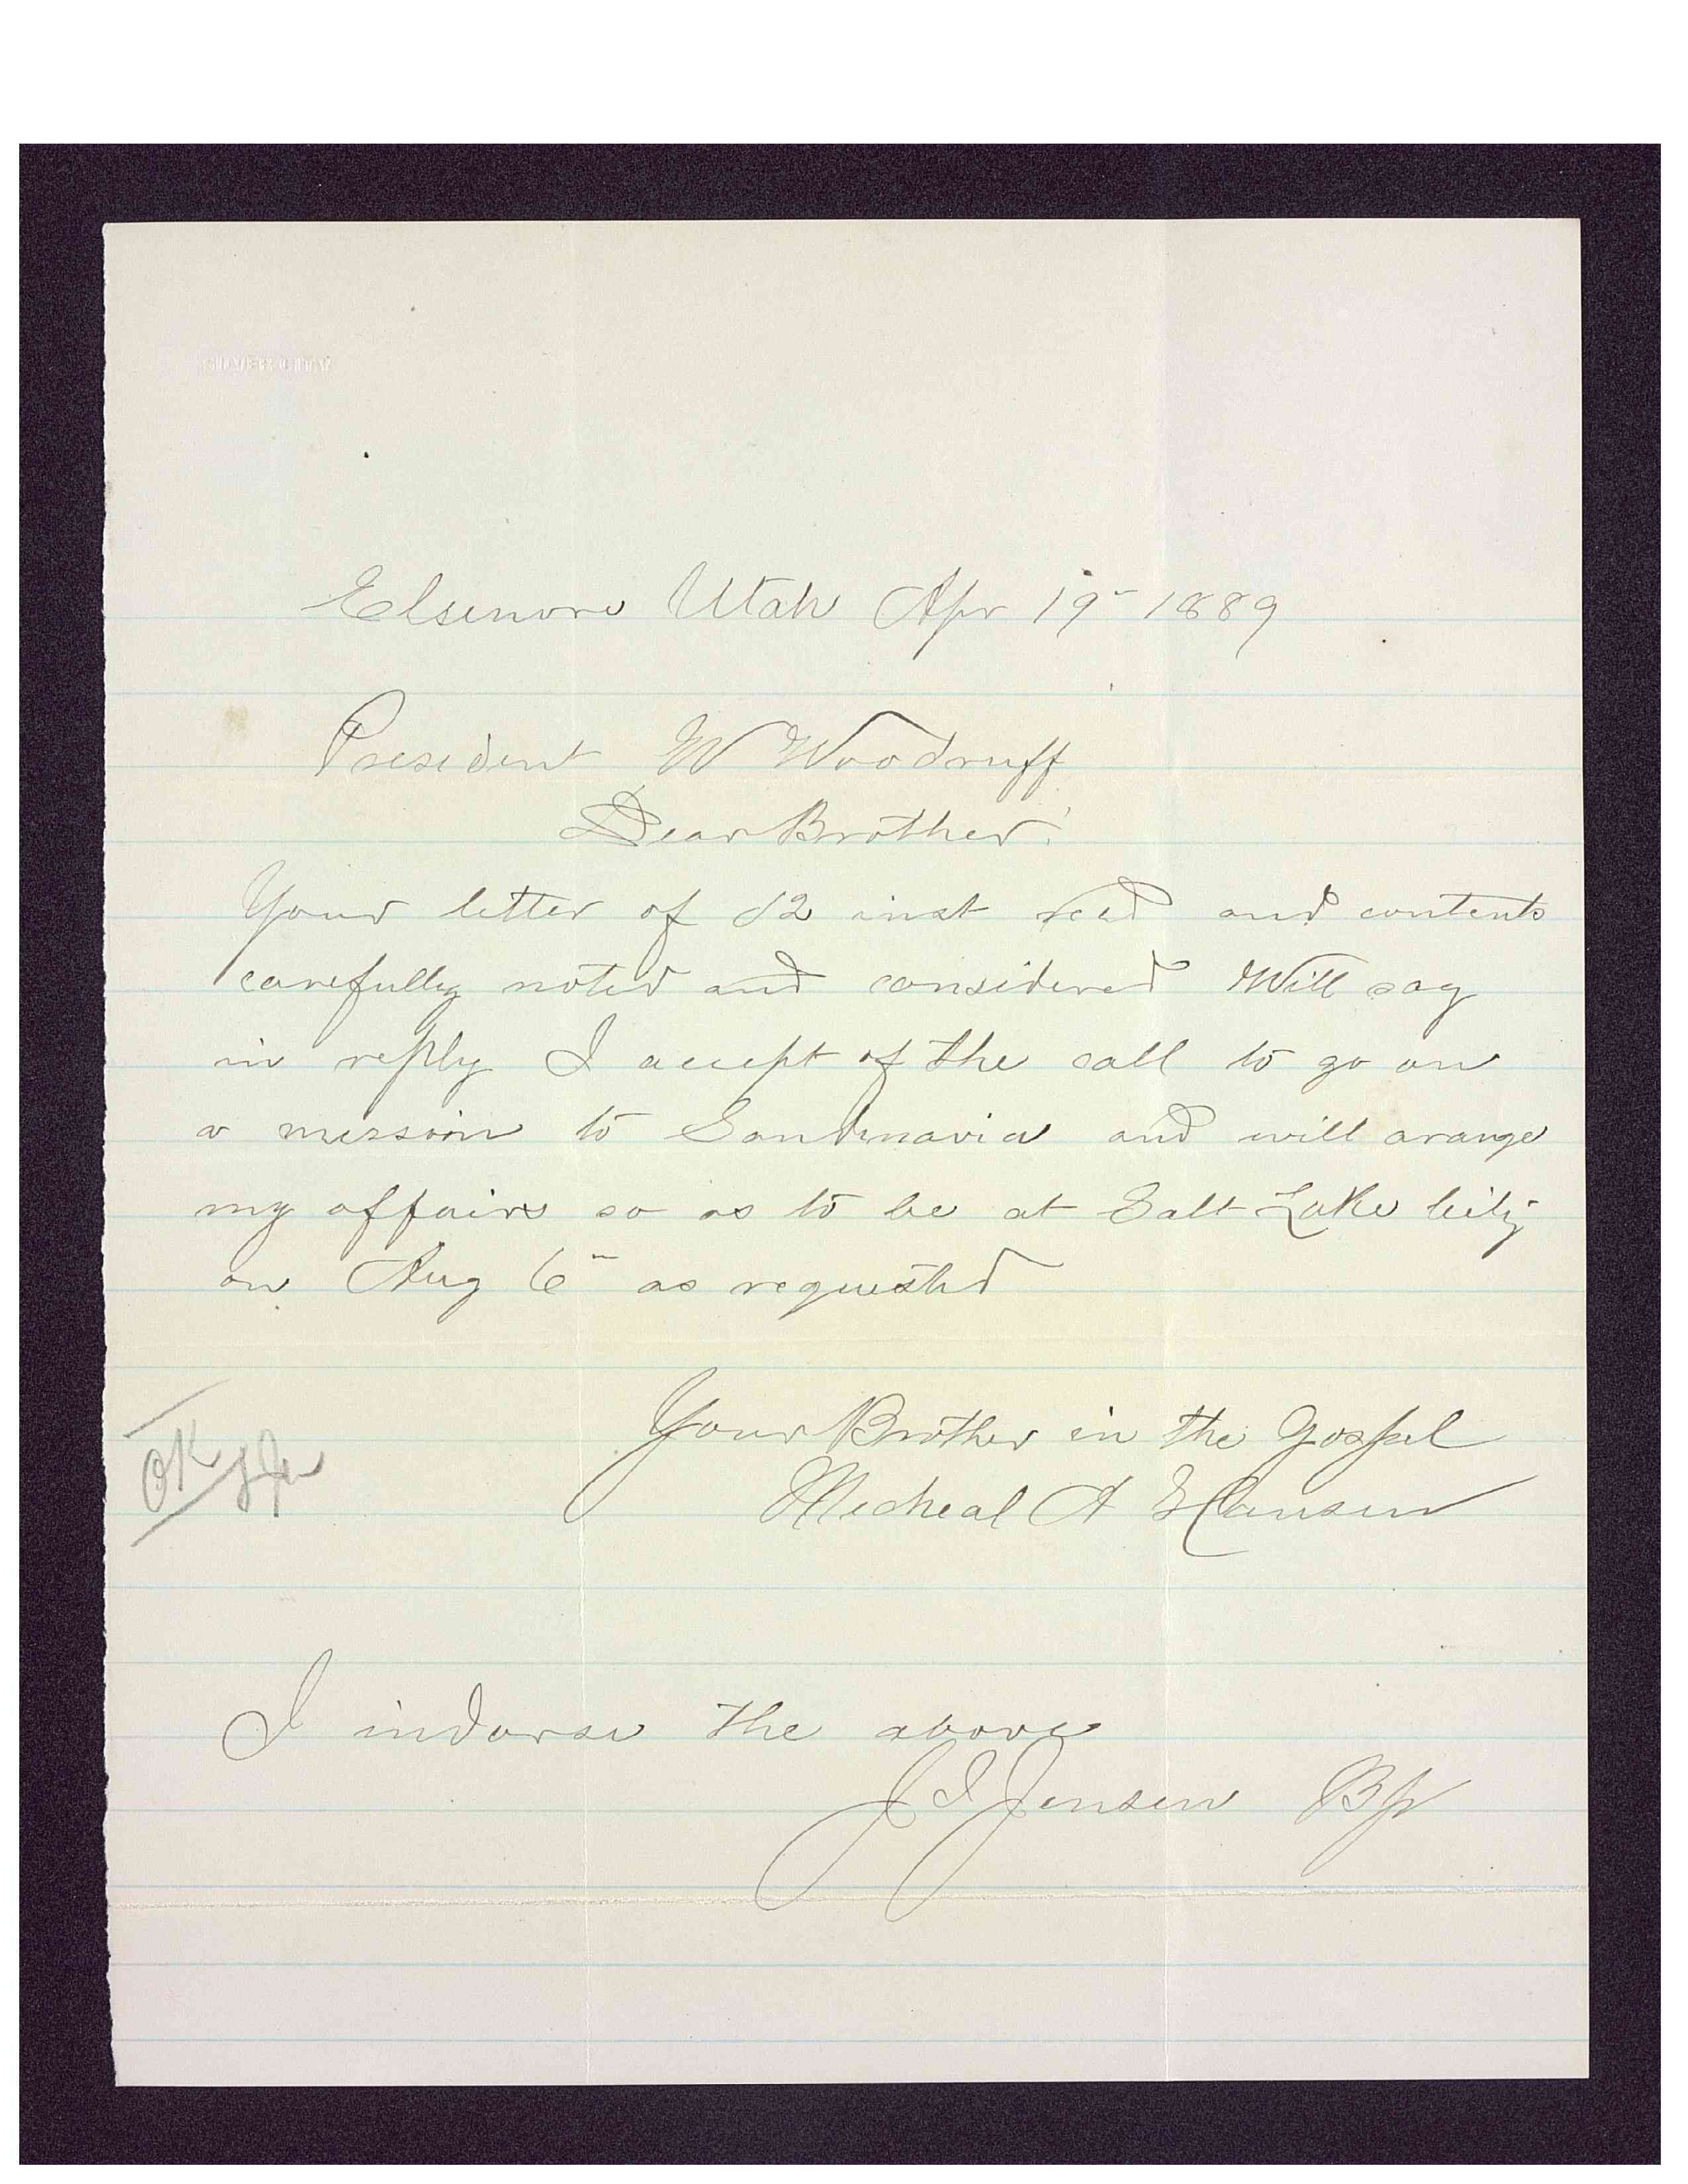 SILVER CITY
Elsenore Utah Apr 19" 1889
President W Woodruff
Dear Brother.
Your letter of 12 inst recd and contents
carefully noted and considered Will say
in reply I accept of the call to go on
a mission to Sandinavia and will arange
my affairs so as to be at Salt Lake City
on Aug 6" as requested
Your Brother in the Gospel
Micheal A Hansen
OK
I indorse the above
J I Jensen Bp